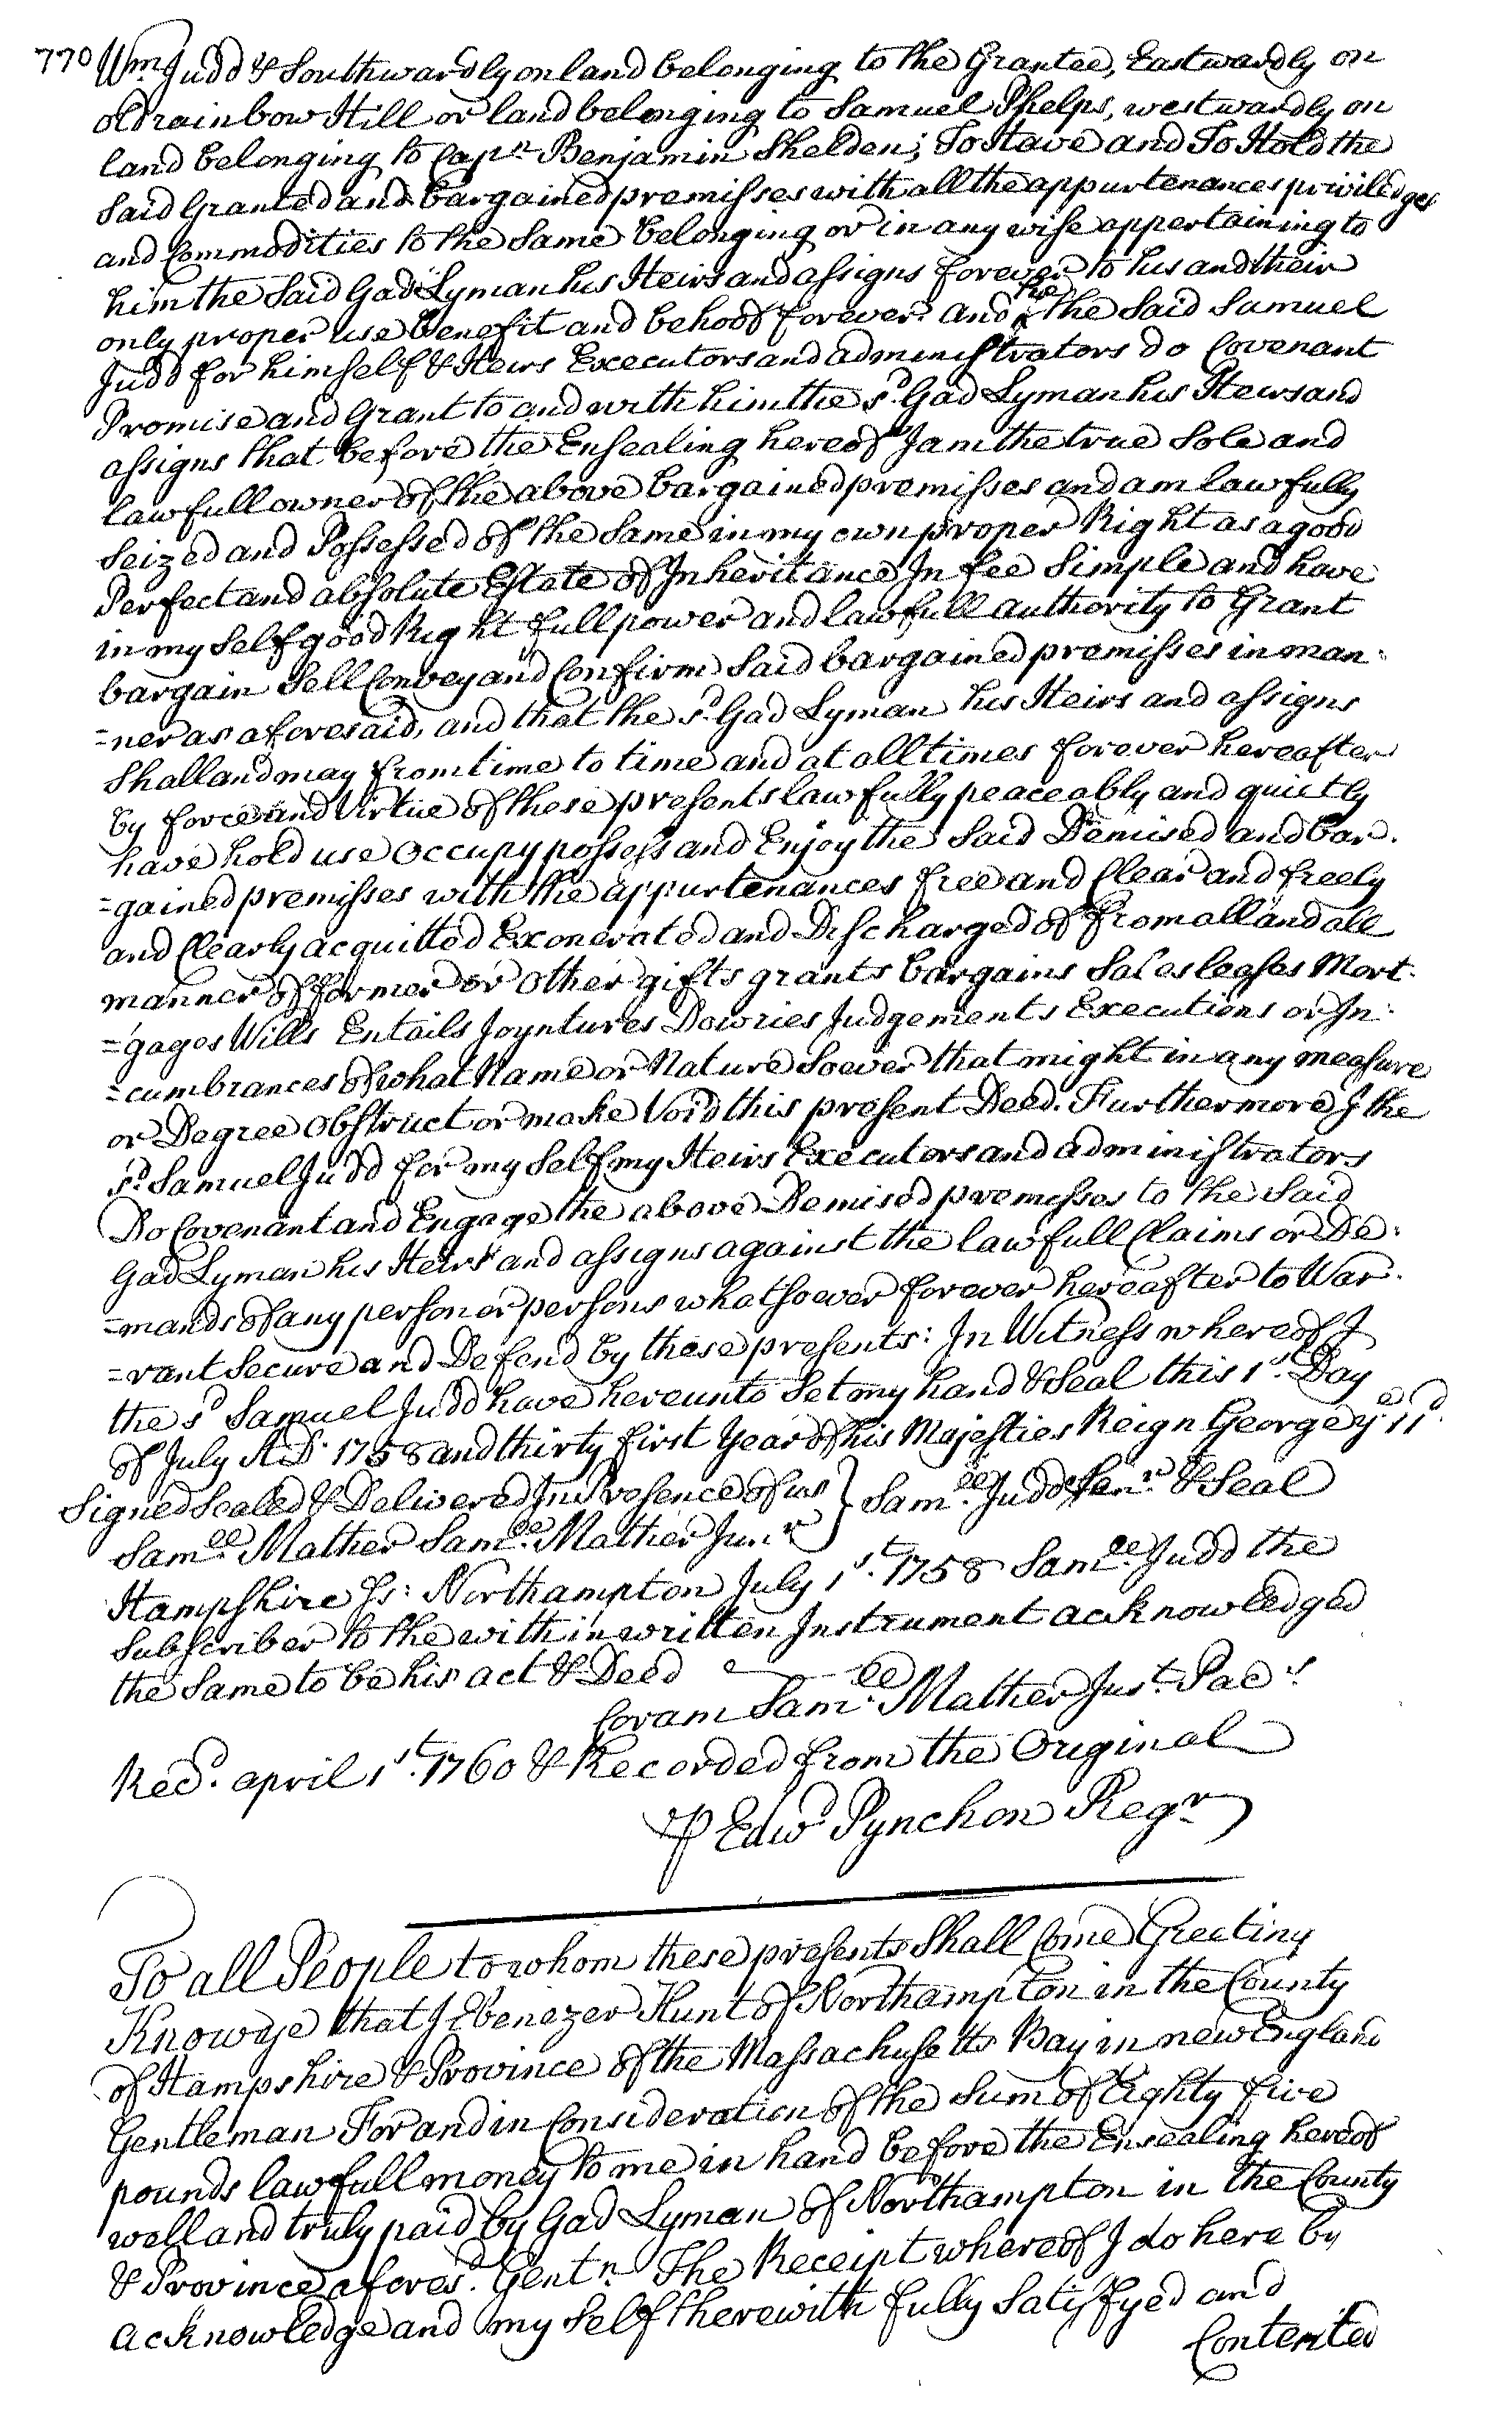 770 Wm. Judd & Southwardly on land belonging to the Grantee, Eastwardly on
old rainbow Hill or land belonging to Samuel Phelps, westwardly on
land belonging to Capn. Benjamin Shelden; To Have and To Hold the
Said Granted and bargained premisses with all the appurtenances priviledges
and Commodities to the Same belonging or in any wise appertaining to
him the Said Gad Lyman his Heirs and assigns forever to his and their
only proper use benefit and behoof forever. and he the Said Samuel
Judd for himself & Heirs Executors and administrators do Covenant
Promise and Grant to and with him the sd. Gad Lyman his Heirs and
assigns that before the Ensealing hereof I am the true Sole and
lawfull owner of the above bargained premisses and am lawfully
Seized and Possessed of the Same in my own proper Right as a good
Perfect and absolute Estate of Inheritance In fee Simple and have
in my Self good Right full power and lawfull authority to Grant
bargain Sell Convey and Confirm Said bargained premisses in man=
=ner as aforesaid, and that the sd. Gad Lyman his Heirs and assigns
Shall and may from time to time and at all times forever hereafter
by force and Virtue of these presents lawfully peaceably and quietly
have hold use occupy possess and Enjoy the Said Demised and bar=
=gained premisses with the appurtenances free and Clear and freely
and Clearly acquitted Exonerated and Discharged of from all and all
manner of former or other gifts grants bargains Sales leases Mort=
=gages Wills Entails Joyntures Dowries Judgements Executions or In=
=cumbrances of what Name or Nature Soever that might in any measure
or Degree obstruct or make Void this present Deed. Furthermore I the
sd. Samuel Judd for my Self my Heirs Executors and administrators
Do Covenant and Engage the above Demised premisses to the Said
Gad Lyman his Heirs and assigns against the lawfull Claims or De=
=mands of any person or persons whatsoever forever hereafter to War=
=rant Secure and Defend by these presents: In Witness whereof I
the sd Samuel Judd have hereunto Set my hand & Seal this 1st. Day
of July A.D. 1758 and thirty first Year of his Majesties Reign George ye. IId.
Signed Sealed & Delivered In Presence of us } Samll. Judd Senr. & Seal
Samll. Mather Samll. Mather Junr
Hampshire Ss: Northampton July 1st. 1758 Samll. Judd the
Subscriber to the within written Instrument acknowledged
the Same to be his act & Deed
Coram Samll. Mather Just. Pacs.
Recd. april 1st. 1760 & Recorded from the Original
p Edwd Pynchon Regr
To all People to whom these presents Shall Come Greeting
Know ye that I Ebenezer Hunt of Northampton in the County
of Hampshire & Province of the Massachusetts Bay in new England
Gentleman For and in Consideration of the Sum of Eighty five
pounds lawfull money to me in hand before the Ensealing hereof
well and truly paid by Gad Lyman of Northampton in the County
& Province aforesd. Gentn. The Receipt whereof I do here by
acknowledge and my Self therewith fully Satisfyed and
Contented